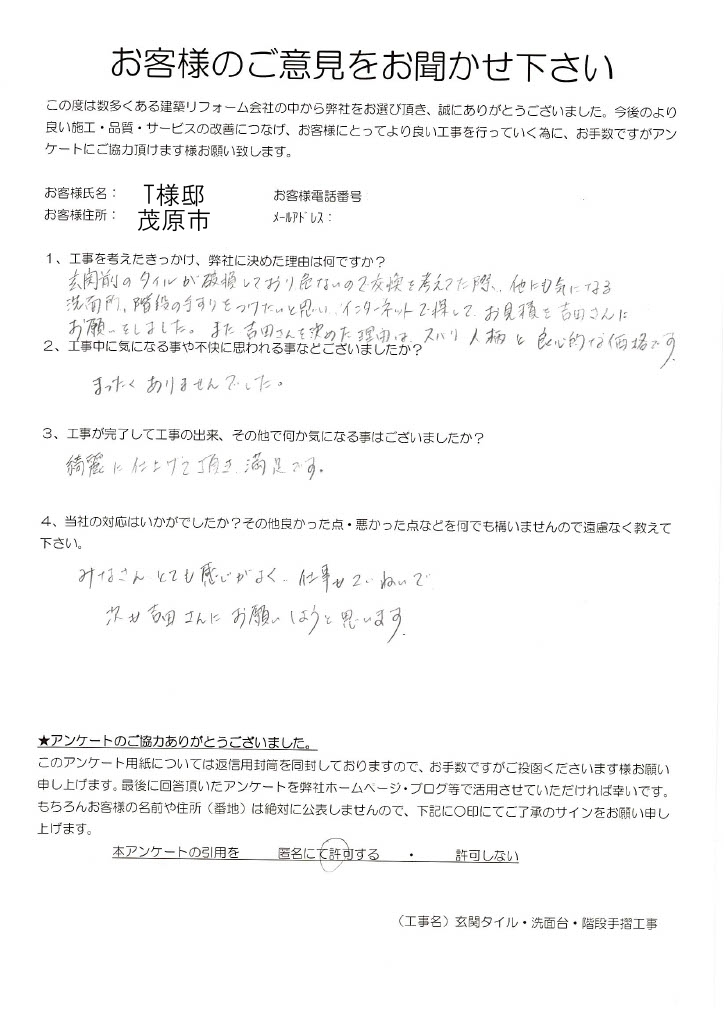 お客様のご意見をお聞かせ下さい
この度は数多くある建築リフォーム会社の中から弊社をお選び頂き、誠にありがとうございました。今後のより
良い施工・品質・サービスの改善につなげ、お客様にとってより良い工事を行っていく為に、お手数ですがアン
ケートにご協力頂けます様お願い致します。
お客様氏名： T様邸 お客様電話番号
お客様住所： 茂原市 ﾒｰﾙｱﾄﾞﾚｽ：
1、工事を考えたきっかけ、弊社に決めた理由は何ですか？
玄関前のタイルが破損しており危ないので交換を考えてた際、他にも気になる
洗面所、階段の手すりをつけたいと思い、インターネットで探して、お見積を吉田さんに
お願いをしました。また吉田さんを決めた理由は、ズバリ人柄と良心的な価格です。
2、工事中に気になる事や不快に思われる事などございましたか？
まったくありませんでした。
3、工事が完了して工事の出来、その他で何か気になる事はございましたか？
綺麗に仕上げて頂き、満足です。
4、当社の対応はいかがでしたか？その他良かった点・悪かった点などを何でも構いませんので遠慮なく教えて
下さい。
みなさん、とても感じがよく、仕事もていねいで
次も吉田さんにお願いしようと思います。
★アンケートのご協力ありがとうございました。
このアンケート用紙については返信用封筒を同封しておりますので、お手数ですがご投函くださいます様お願い
申し上げます。最後に回答頂いたアンケートを弊社ホームページ・ブログ等で活用させていただければ幸いです。
もちろんお客様の名前や住所（番地）は絶対に公表しませんので、下記に〇印にてご了承のサインをお願い申し
上げます。
本アンケートの引用を 匿名にて許可する ・ 許可しない
（工事名）玄関タイル・洗面台・階段手摺工事